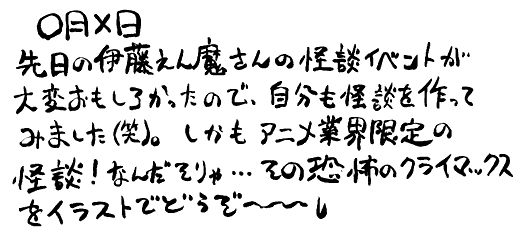 ○月×日
先日の伊藤えん魔さんの怪談イベントが
大変おもしろかったので、自分も怪談を作って
みました(笑)。しかもアニメ業界限定の
怪談!なんだそりゃ…その恐怖のクライマックス
をイラストでどうぞ〜〜〜し